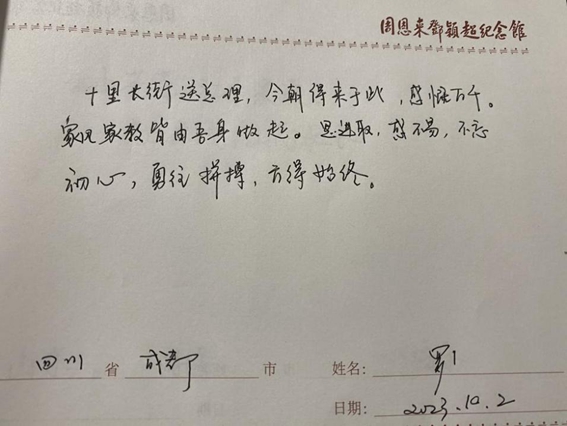 周恩来邓颖超纪念馆
十里长街送总理,今朝得来于此,感慨万千。
家风家教皆由吾身做起。思进取,感不易,不忘
初心,勇往拼搏,方得始终。
四川 省 成都 市 姓名: 罗
日期: 2023.10.2